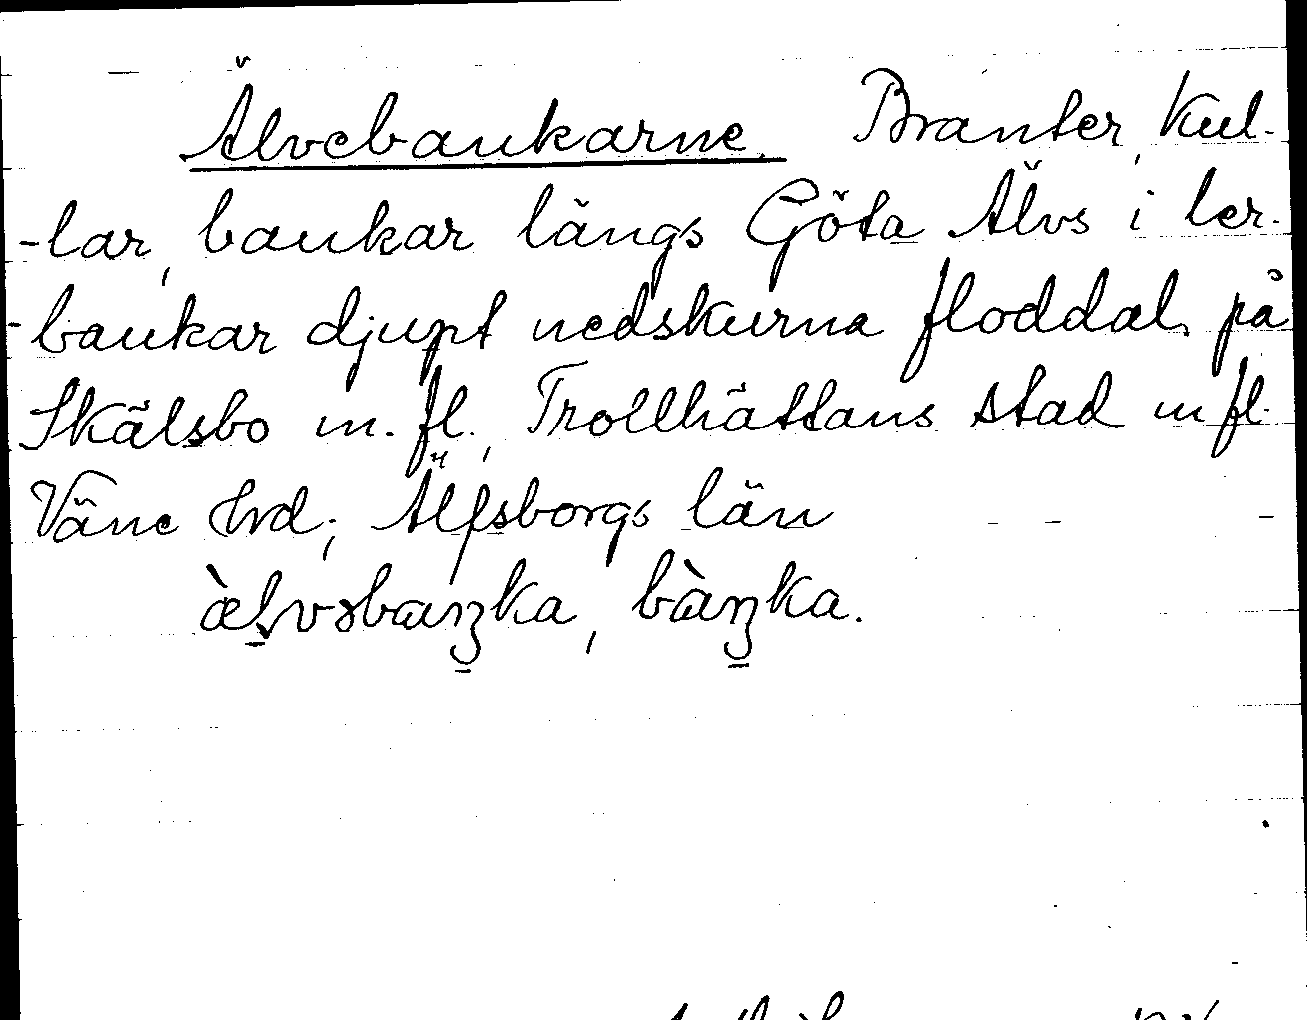 Älvebankarne. Branter, kul-
-lar, bankar längs Göta Älvs i ler-
-bankar djupt nedskurna floddal, på
Skälsbo m. fl., Trollhättans stad m fl.
Väne Hrd, Älfsborgs län